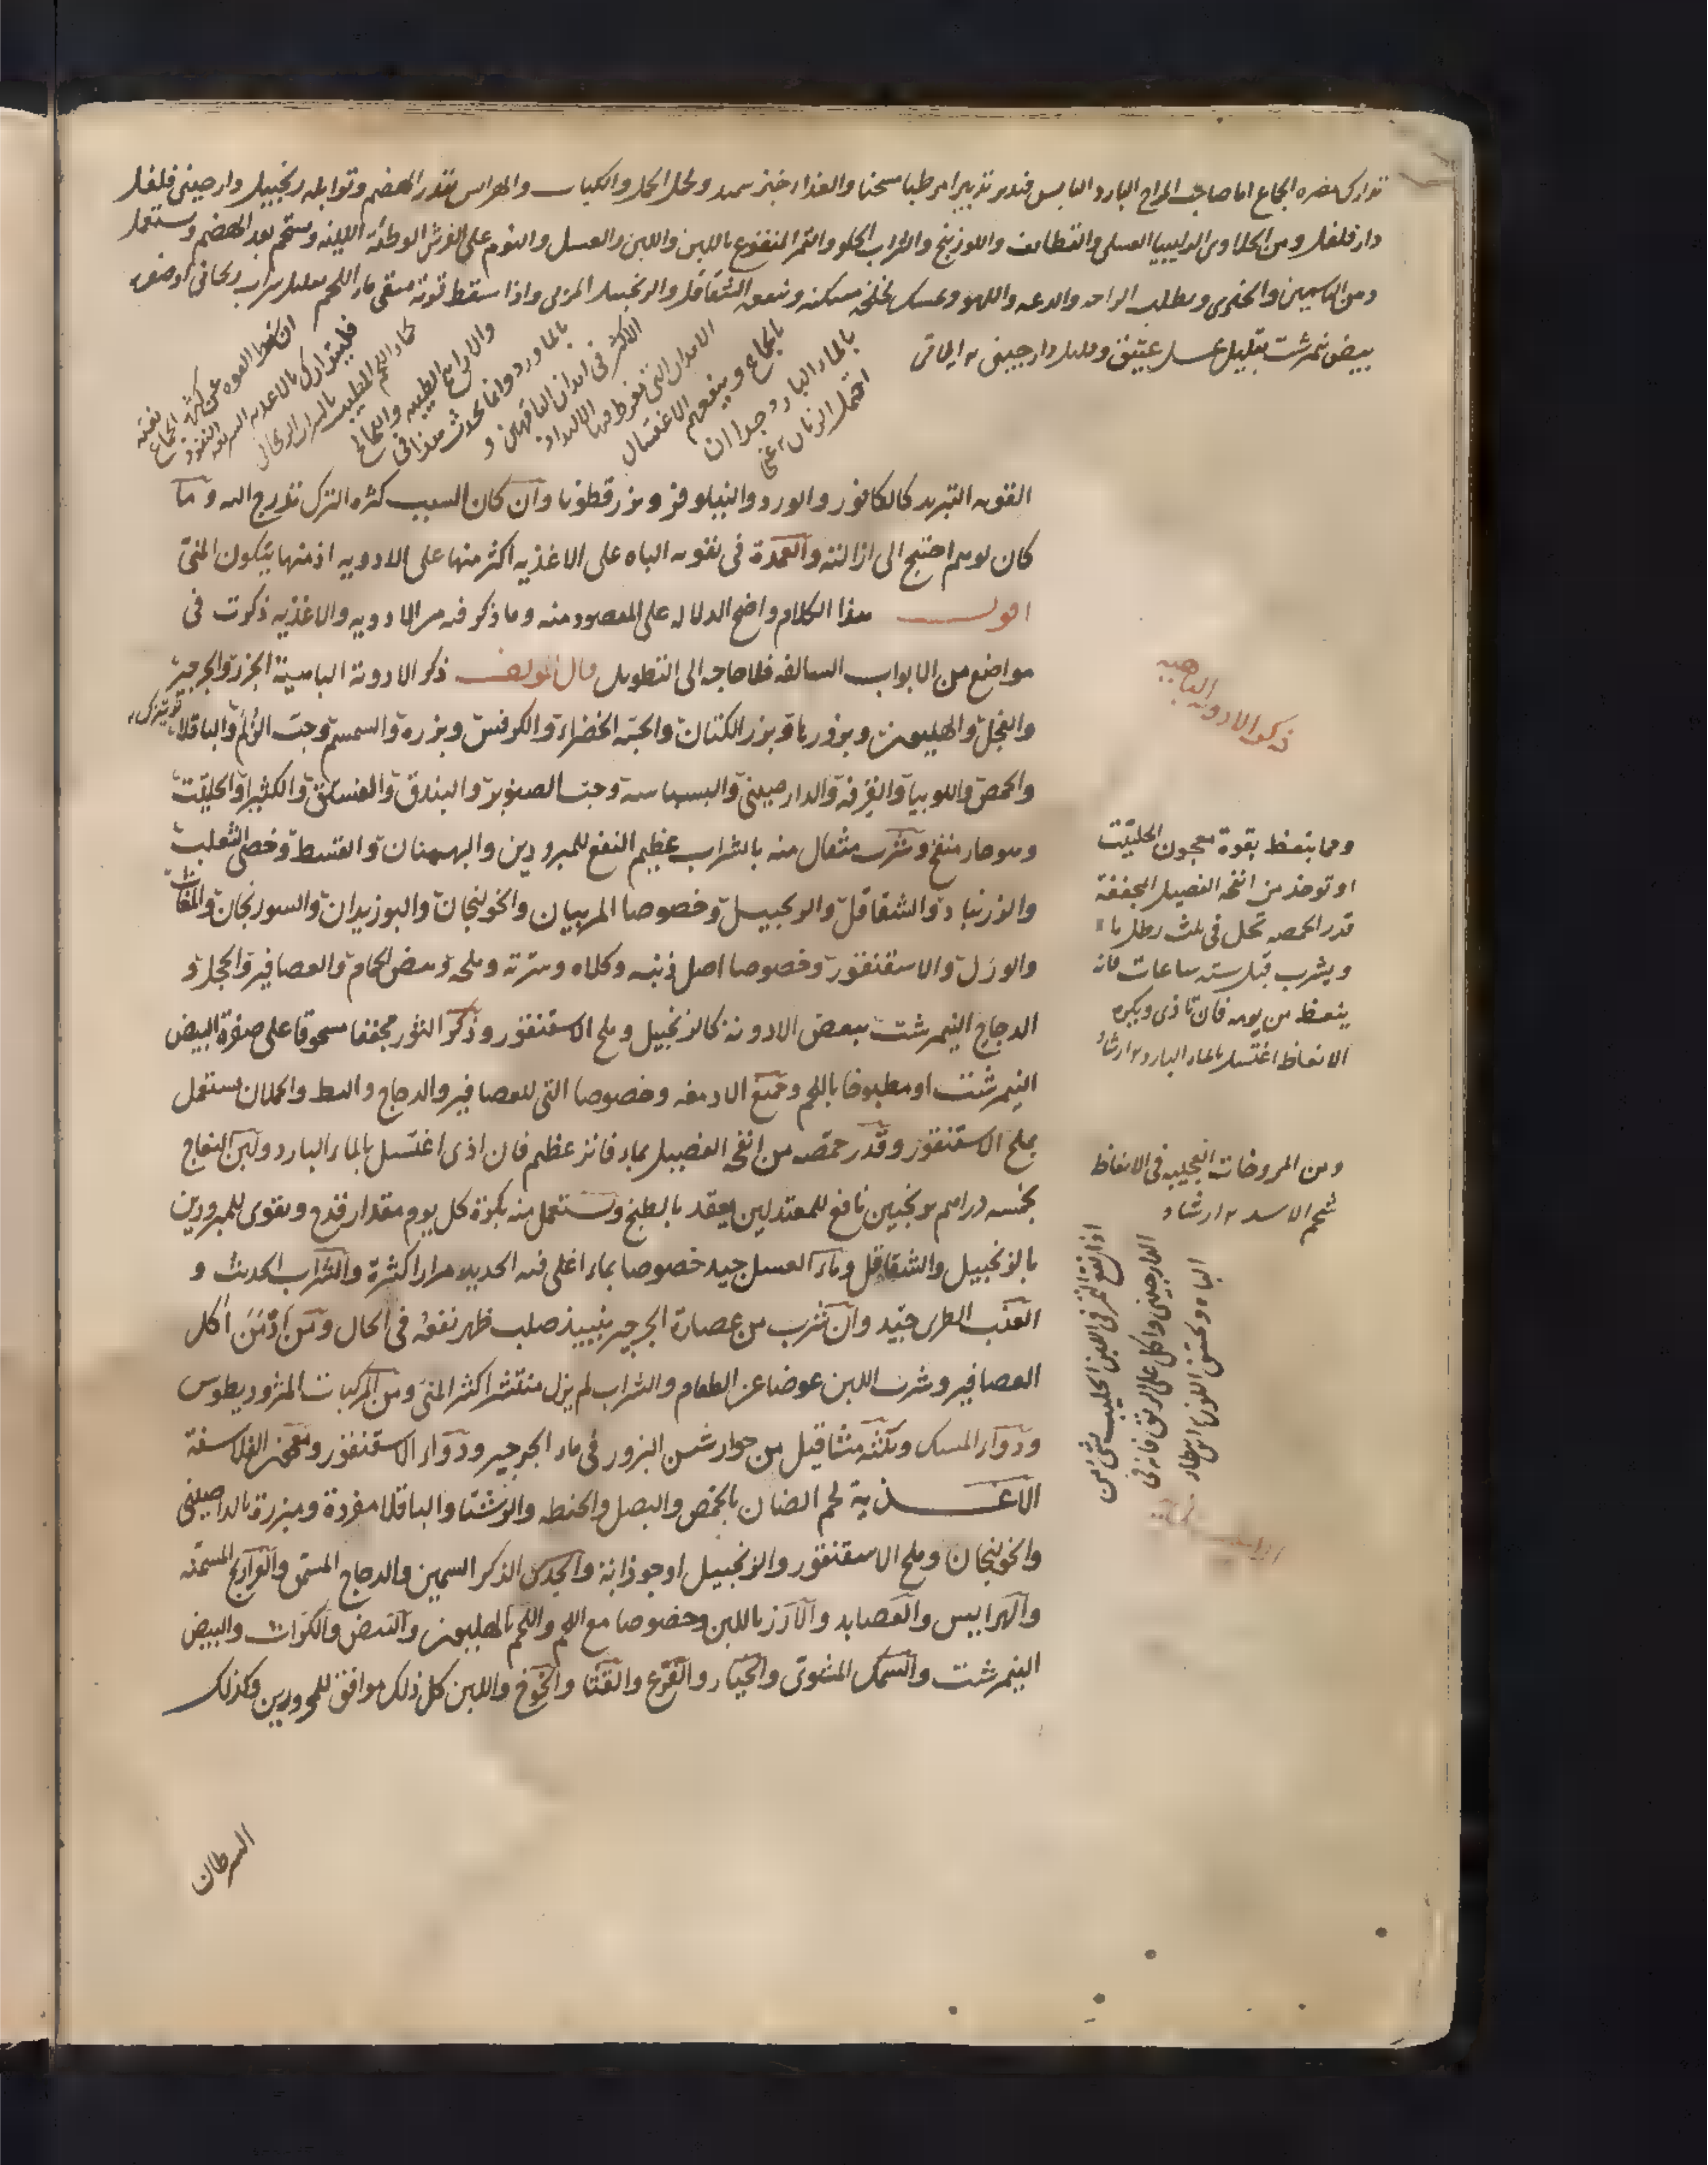 تدارك مضره الجماع اما صاحب المزاج البارد اليابس فتدبر تدبيرا مرطبا مسخنا والغذا خبز سميد ولحل الحمل والكباب والهرايس بقدر الهضم وتوابله زنجبيل ودارصيني فلفل
دارفلفل ومن الحلاوى العسلى والقطايف واللوزينج والشراب الحلو والتمر المنقوع باللبن واللبن والعسل والنوم على الفرش الوطئة اللينة وستحم بعد الهضم وستعمل
دهن الياسمين والخيرى وطلب الراحه والدعه واللهو وينفعه الشقاقل والزنجبيل المربى واذا سقطت قوته سقى ماء اللحم بقليل شراب ريحانى او صفره
بيض نمرشت بقليل عسل عتيق وقليل دارچينى ايلاقى
ان سقطت القوه عن كثرة الجماع
فليتدارك بالاغذيه السريعه النفوذ
كماء اللحم المطيب بالشراب الريحانى
والارايح الطيبه
بالماورد وانما يحدث هذا فى
الاكثر فى ابدان الناقهين و
الابدان التى تفرط فيها الالتذاذ
بالجماع وينفعهم الاغتسال
بالماء البارد جدا ان
احتمل الزمان
القويه التبريد كالكافور والورد والنيلوفر وبزرقطونا وان كان السبب كثره الترك تدرج اليه وما
كان لوهم احتيج الى ازالته والعمدة فى تقويه الباه على الاغذيه اكثر منها على الادويه اذ منها يتكون المنى
اقول هذا الكلام واضح الدلاله على المقصود منه وما ذكر فيه من الادويه والاغذيه ذكرت فى
مواضع من الابواب السالفه فلا حاجه الى التطويل قال المولف ذكر الادوية الباهية الجزر والجرجير
والفجل والهليون وبزورها وبزر الكتان والحبة الخضراء والكرفس وبزره والسمسم وحب الزلم والباقلا
والحمص واللوبيا والقرفه والدارصينى والبسباسه وحب الصنوبر والبندق والفستق والكثيرا والحلتيت
وهو حار منفخ وشرب مثقال منه بالشراب عظيم النفع للمبرودين والبهمنان والقسط وخصى الثعلب
والزرنباد والشقاقل والزنجبيل وخصوصا المربيان والخولنجان والبوزيدان والسورنجان والمغاث
والورل والاسقنقور وخصوصا اصل ذنبه وكلاه وسرته وملحه وبيض الحمام والعصافير والحجل و
الدجاج النيمرشت ببعض الادوية كالزنجبيل وملح الاسقنقور وذكر الثور مجففا مسحوقا على صفرة البيض
النيمرشت او مطبوخا باللحم وجميع الادمغه وخصوصا التى للعصافير والدجاج والبط والحملان يستعمل
بملح الاسقنقور وقدر حمصه من انفحة الفصيل بماء فانه عظيم فان اذى اغتسل بالماء البارد ولبن النعاج
بخمسه دراهم ترنجبين نافع للمعتدلين يعقد بالطبخ ويستعمل منه بكرة كل يوم مقدار قدح ويقوى للمبرودين
بالزنجبيل والشقاقل وماء العسل جيد خصوصا بماء اغلى فيه الحديد مرارا كثيرة والشراب الحديث و
العنب الطرى جيد وان شرب من عصارة الجرجير بنبيذ صلب ظهر نفعه فى الحال ومن ادمن اكل
العصافير وشرب اللبن عوضا عن الطعام والشراب لم يزل منتشرا كثير المنى ومن المركبات المثروديطوس
ودواء المسك وثلثة مثاقيل من جوارشن البزور فى ماء الجرجير ودواء الاسقنقور ومعجون الفلاسفة
الاغذية لحم الضان بالحمص والبصل والحنطه والرشتا والباقلا مفردة ومبزرة بالدارصينى
والخولنجان وملح الاسقنقور والزنجبيل او جوذابة والجدى الذكر السمين والدجاج المسمن والفراريج المسمنه
والهرايس والعصايد والارز باللبن وخصوصا مع اللحم واللحم بالهليون والبيض والكراث والبيض
النيمرشت والسمك المشوى والخيار والقرع والقثا والخوخ واللبن كل ذلك موافق للمحرورين وكذلك
السرطان
ذكر الادوية الباهيه
ومما ينعظ بقوة معجون الحلتيت
او توخذ من انفحة الفصيل المجففة
قدر الحمصه تحل فى ثلث رطل ماء
ويشرب قبل سته ساعات فانه
ينعظ من يومه فان تاذى وبكره
الانعاظ اغتسل بالماء البارد ارشاد
ومن المروخات العجيبه فى الانعاظ
شحم الاسد ارشاد
اذا نقع التمر فى اللبن الحليب شى من
الدارچينى واكل على الريق فانه فى